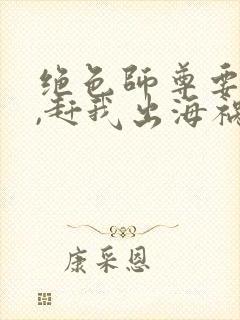 绝色师尊要
,赶我出海祸
康采恩